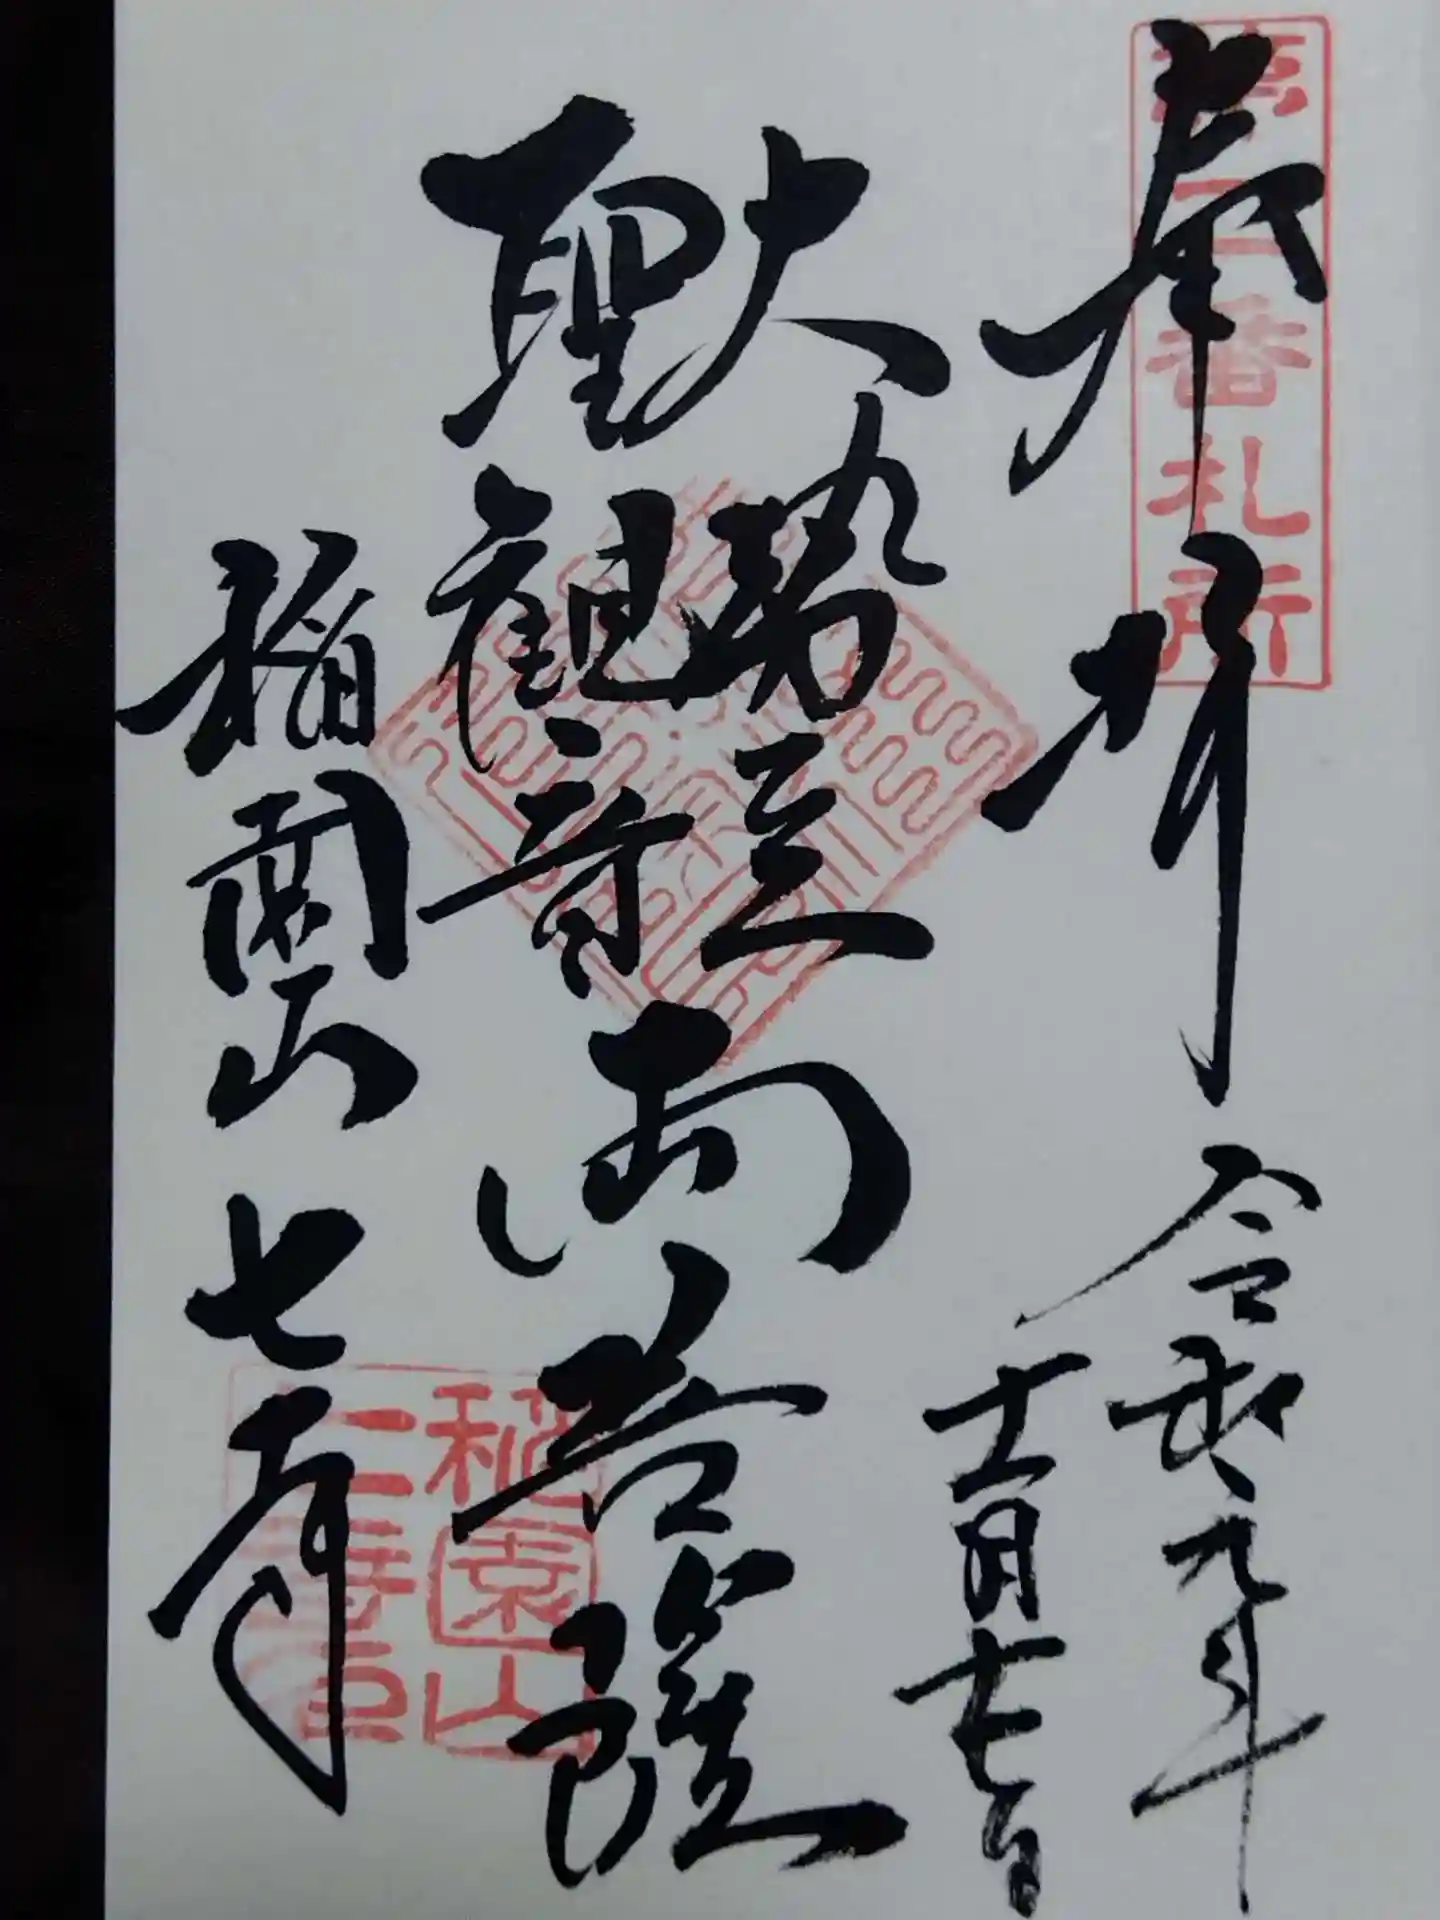 第二番札所
奉拝
令和元年
十一月十七日
大勢至
聖観音
両菩薩
稲園山 七寺
稲園山
寺印